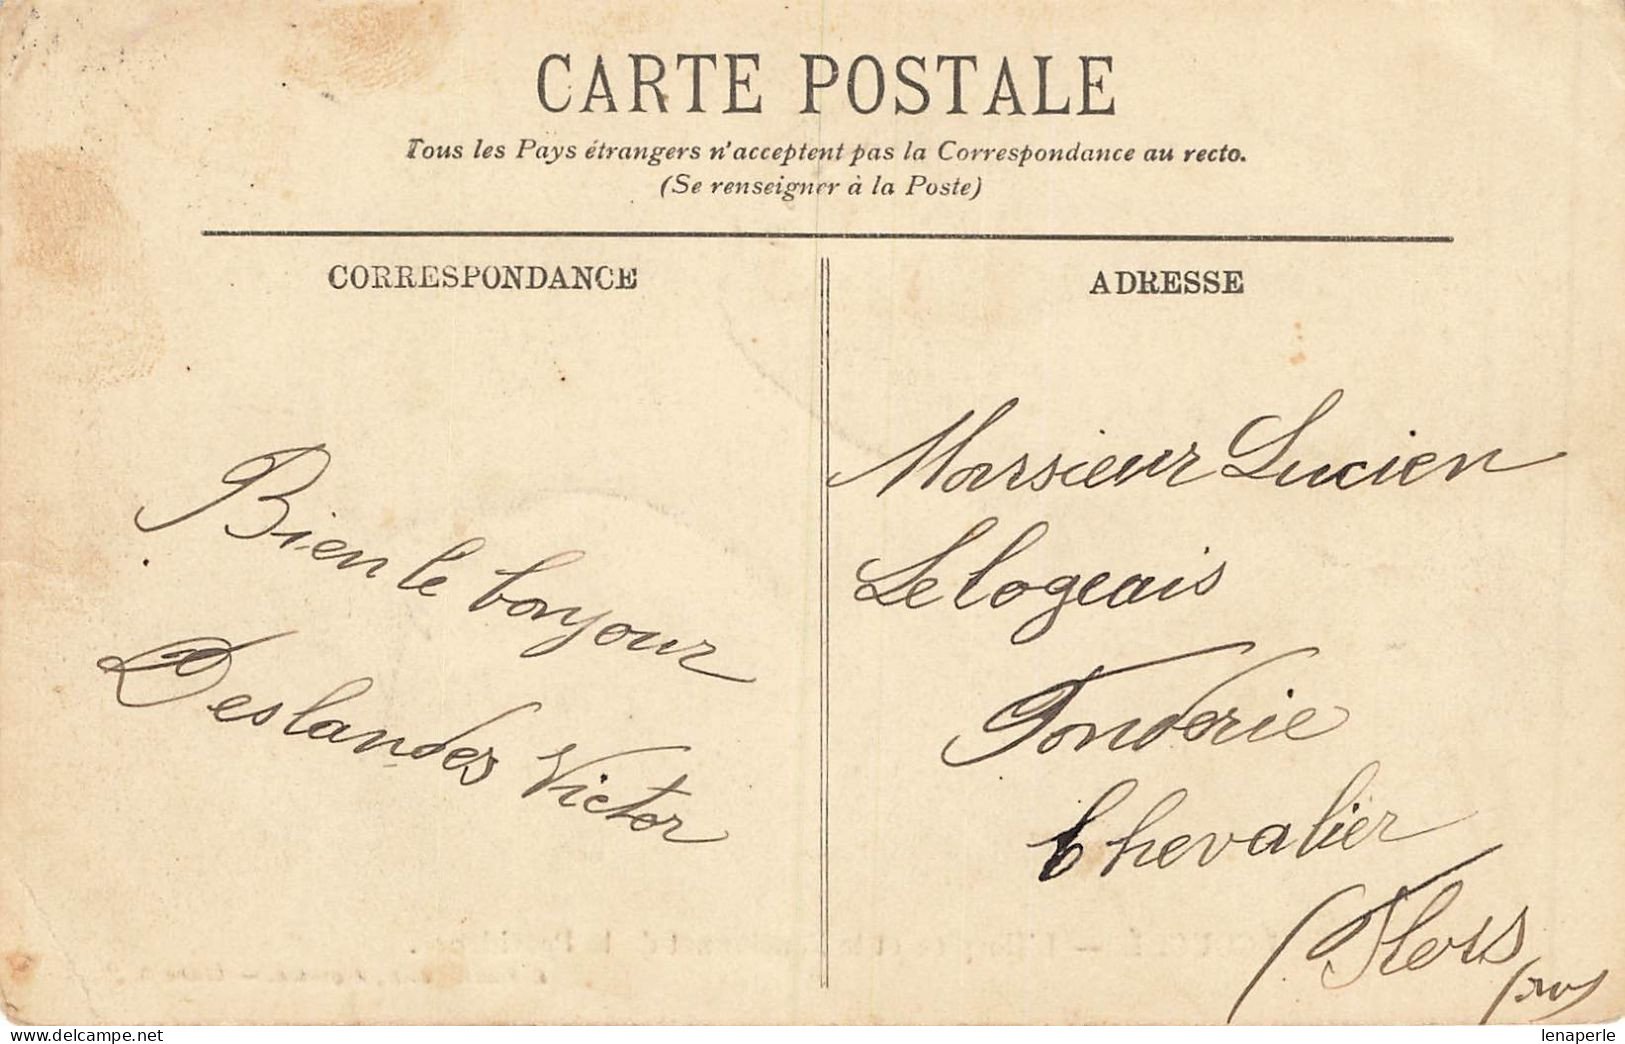 CARTE POSTALE
Tous les Pays étrangers n'acceptent pas la Correspondance au recto.
(Se renseigner à la Poste)
CORRESPONDANCE
ADRESSE
Bien le bonjour
Deslandes Victor
Monsieur Lucien
Lelogeais
Fonderie
Chevalier
Flers
www.delcampe.net
lenaperle